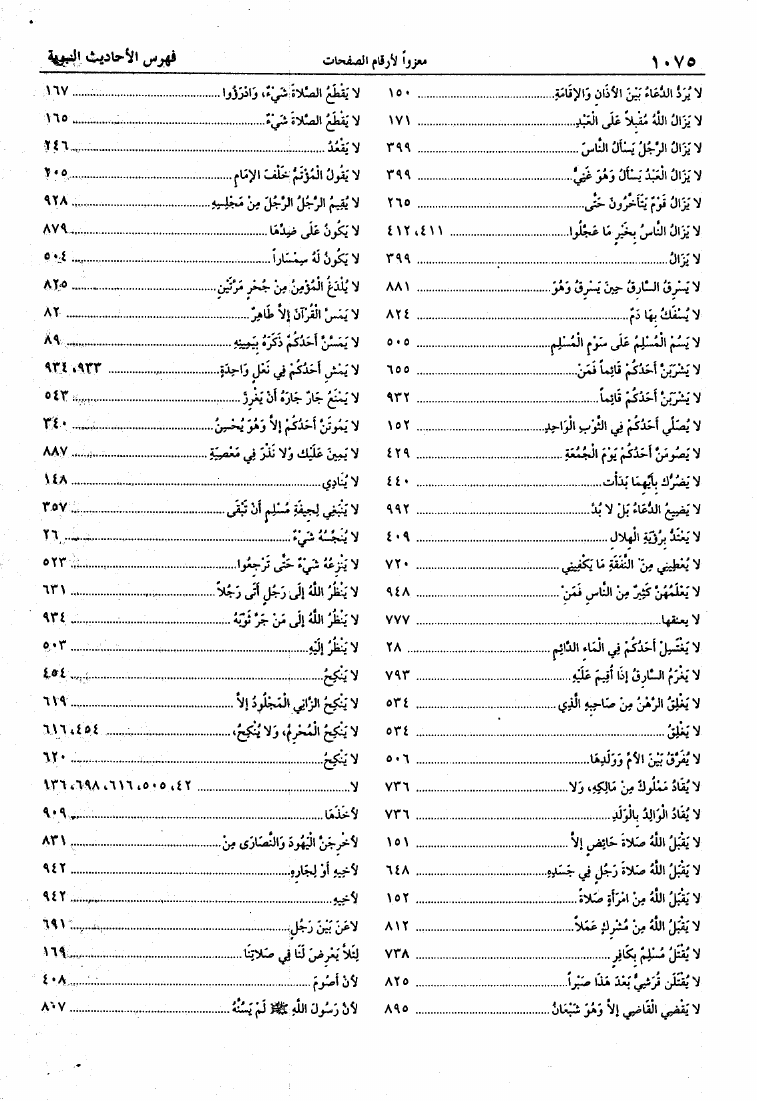 ١٠٧٥ معزواً لأرقام الصفحات فهرس الأحاديث النبوية
لا يُرَدُّ الدُّعَاءُ بَيْنَ الأَذَانِ وَالإِقَامَةِ ............ ١٥٠
لا يَزَالُ اللَّهُ مُقْبِلاً عَلَى الْعَبْدِ ............ ١٧١
لا يَزَالُ الرَّجُلُ يَسْأَلُ النَّاسَ ............ ٣٩٩
لا يَزَالُ الْعَبْدُ يَسْأَلُ وَهُوَ غَنِيٌّ ............ ٣٩٩
لا يَزَالُ قَوْمٌ يَتَأَخَّرُونَ حَتَّى ............ ٢٦٥
لا يَزَالُ النَّاسُ بِخَيْرٍ مَا عَجَّلُوا ............ ٤١١، ٤١٢
لا يَزَالُ ............ ٣٩٩
لا يَسْرِقُ السَّارِقُ حِينَ يَسْرِقُ وَهُوَ ............ ٨٨١
لا يُسْفَكُ بِهَا دَمٌ ............ ٨٢٤
لا يَسُمِ الْمُسْلِمُ عَلَى سَوْمِ الْمُسْلِمِ ............ ٥٠٥
لا يَشْرَبَنَّ أَحَدُكُمْ قَائِماً فَمَنْ ............ ٦٥٥
لا يَشْرَبَنَّ أَحَدُكُمْ قَائِماً ............ ٩٣٢
لا يُصَلِّي أَحَدُكُمْ فِي الثَّوْبِ الْوَاحِدِ ............ ١٥٢
لا يَصُومَنَّ أَحَدُكُمْ يَوْمَ الْجُمُعَةِ ............ ٤٢٩
لا يَضُرُّكَ بِأَيِّهِمَا بَدَأْتَ ............ ٤٤٠
لا يَضِيعُ الدُّعَاءُ بَلْ لا بُدَّ ............ ٩٩٢
لا يَعْتَدُّ بِرُؤْيَةِ الْهِلالِ ............ ٤٠٩
لا يُعْطِينِي مِنَ النَّفَقَةِ مَا يَكْفِينِي ............ ٧٢٠
لا يَعْلَمُهُنَّ كَثِيرٌ مِنَ النَّاسِ فَمَنْ ............ ٩٤٨
لا يعنقها ............ ٧٧٧
لا يَغْتَسِلْ أَحَدُكُمْ فِي الْمَاءِ الدَّائِمِ ............ ٢٨
لا يَغْرَمُ السَّارِقُ إِذَا أُقِيمَ عَلَيْهِ ............ ٧٩٣
لا يَغْلِقُ الرَّهْنُ مِنْ صَاحِبِهِ الَّذِي ............ ٥٣٤
لا يَغْلِقُ ............ ٥٣٤
لا يُفَرَّقُ بَيْنَ الأُمِّ وَوَلَدِهَا ............ ٥٠٦
لا يُقَادُ مَمْلُوكٌ مِنْ مَالِكِهِ، وَلا ............ ٧٣٦
لا يُقَادُ الْوَالِدُ بِالْوَلَدِ ............ ٧٣٦
لا يَقْبَلُ اللَّهُ صَلاةَ حَائِضٍ إِلاَّ ............ ١٥١
لا يَقْبَلُ اللَّهُ صَلاةَ رَجُلٍ فِي جَسَدِهِ ............ ٦٤٨
لا يَقْبَلُ اللَّهُ مِنَ امْرَأَةٍ صَلاةً ............ ١٥٢
لا يَقْبَلُ اللَّهُ مِنْ مُشْرِكٍ عَمَلاً ............ ٨١٢
لا يُقْتَلُ مُسْلِمٌ بِكَافِرٍ ............ ٧٣٨
لا يُقْتَلَن قُرَشِيٌّ بَعْدَ هَذَا صَبْراً ............ ٨٢٥
لا يَقْضِي الْقَاضِي إِلاَّ وَهُوَ شَبْعَانُ ............ ٨٩٥
لا يَقْطَعُ الصَّلاةَ شَيْءٌ، وَادْرَؤُوا ............ ١٦٧
لا يَقْطَعُ الصَّلاةَ شَيْءٌ ............ ١٦٥
لا يَقْعُدُ ............ ٢٤٦
لا يَقُولُ الْمُؤْتَمُّ خَلْفَ الإِمَامِ ............ ٢٠٥
لا يُقِيمُ الرَّجُلُ الرَّجُلَ مِنْ مَجْلِسِهِ ............ ٩٢٨
لا يَكُونُ عَلَى ضِدِّهَا ............ ٨٧٩
لا يَكُونُ لَهُ سِمْسَاراً ............ ٥٠٤
لا يُلْدَغُ الْمُؤْمِنُ مِنْ جُحْرٍ مَرَّتَيْنِ ............ ٨٢٥
لا يَمَسُّ الْقُرْآنَ إِلاَّ طَاهِرٌ ............ ٨٢
لا يَمَسَّنَّ أَحَدُكُمْ ذَكَرَهُ بِيَمِينِهِ ............ ٨٩
لا يَمْشِي أَحَدُكُمْ فِي نَعْلٍ وَاحِدَةٍ ............ ٩٣٣، ٩٣٤
لا يَمْنَعُ جَارٌ جَارَهُ أَنْ يَغْرِزَ ............ ٥٤٣
لا يَمُوتَنَّ أَحَدُكُمْ إِلاَّ وَهُوَ يُحْسِنُ ............ ٣٤٠
لا يَمِينَ عَلَيْكَ وَلا نَذْرَ فِي مَعْصِيَةِ ............ ٨٨٧
لا يُنَادِي ............ ١٤٨
لا يَنْبَغِي لِجِيفَةِ مُسْلِمٍ أَنْ تَبْقَى ............ ٣٥٧
لا يُنَجِّسُهُ شَيْءٌ ............ ٢٦
لا يَنْزِعُهُ شَيْءٌ حَتَّى تَرْجِعُوا ............ ٥٢٣
لا يَنْظُرُ اللَّهُ إِلَى رَجُلٍ أَتَى رَجُلاً ............ ٦٣١
لا يَنْظُرُ اللَّهُ إِلَى مَنْ جَرَّ ثَوْبَهُ ............ ٩٣٤
لا يَنْظُرُ إِلَيْهِ ............ ٥٠٣
لا يَنْكِحُ ............ ٤٥٤
لا يَنْكِحُ الزَّانِي الْمَجْلُودُ إِلاَّ ............ ٦١٩
لا يَنْكِحُ الْمُحْرِمُ، وَلا يُنْكِحُ، ............ ٤٥٤، ٦١٦
لا يَنْكِحُ ............ ٦٢٠
لا ............ ٤٢، ٥٠٥، ٦١٦، ٦٩٨، ٩٣٦
لأَخَذَهَا ............ ٩٠٩
لأُخْرِجَنَّ الْيَهُودَ وَالنَّصَارَى مِنْ ............ ٨٣١
لأَخِيهِ أَوْ لِجَارِهِ ............ ٩٤٢
لأَخِيهِ ............ ٩٤٢
لاعَنَ بَيْنَ رَجُلٍ ............ ٦٩١
لِئَلاَّ يَعْرِضَ لَنَا فِي صَلاتِنَا ............ ١٦٩
لأَنْ أَصُومَ ............ ٤٠٨
لأَنَّ رَسُولَ اللَّهِ ﷺ لَمْ يَسُنَّهُ ............ ٨٦٧